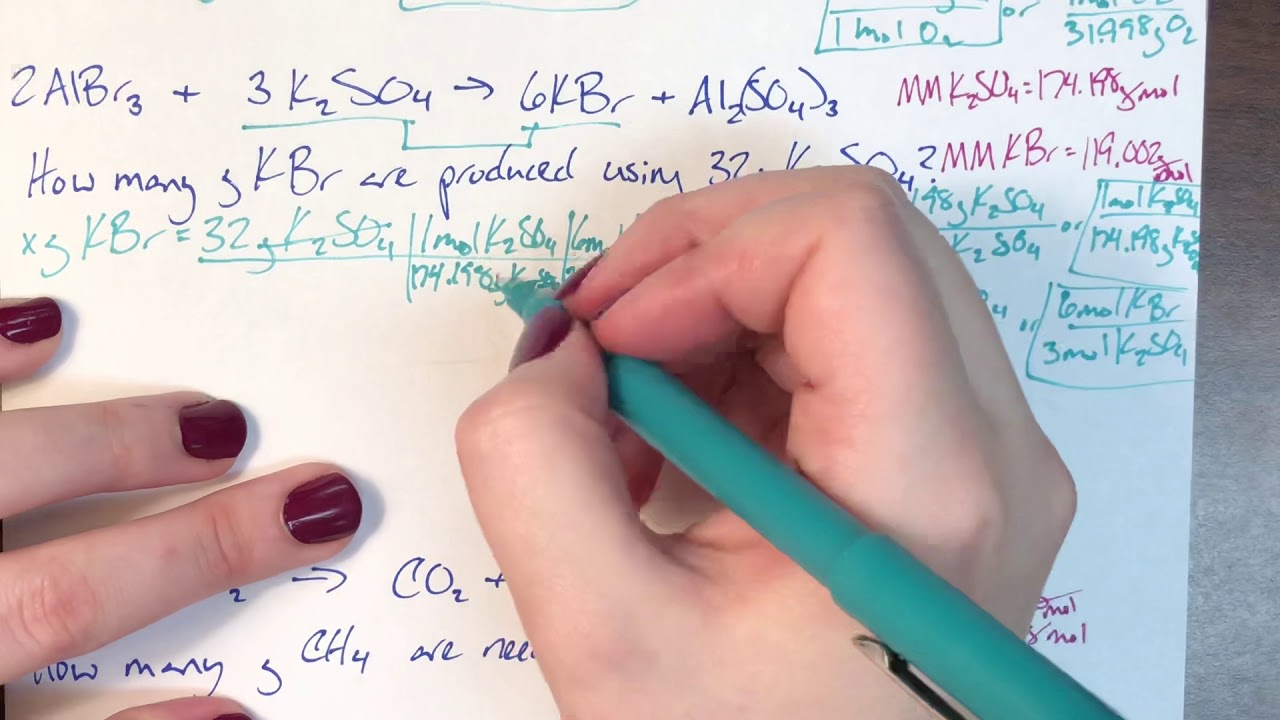 1 mol O2 or 31.998g O2
2AlBr3 + 3 K2SO4 → 6KBr + Al2(SO4)3
MM K2SO4 = 174.198 g/mol
How many g KBr are produced using 32g K2SO4?
MM KBr = 119.002 g/mol
x g KBr = 32g K2SO4 | 1 mol K2SO4 | 6m
174.198g K2SO4
98g K2SO4
K2SO4
or
1 mol K2SO4
174.198g K2SO4
or
6 mol KBr
3 mol K2SO4
2 → CO2 +
mol
g/mol
How many g CH4 are nee